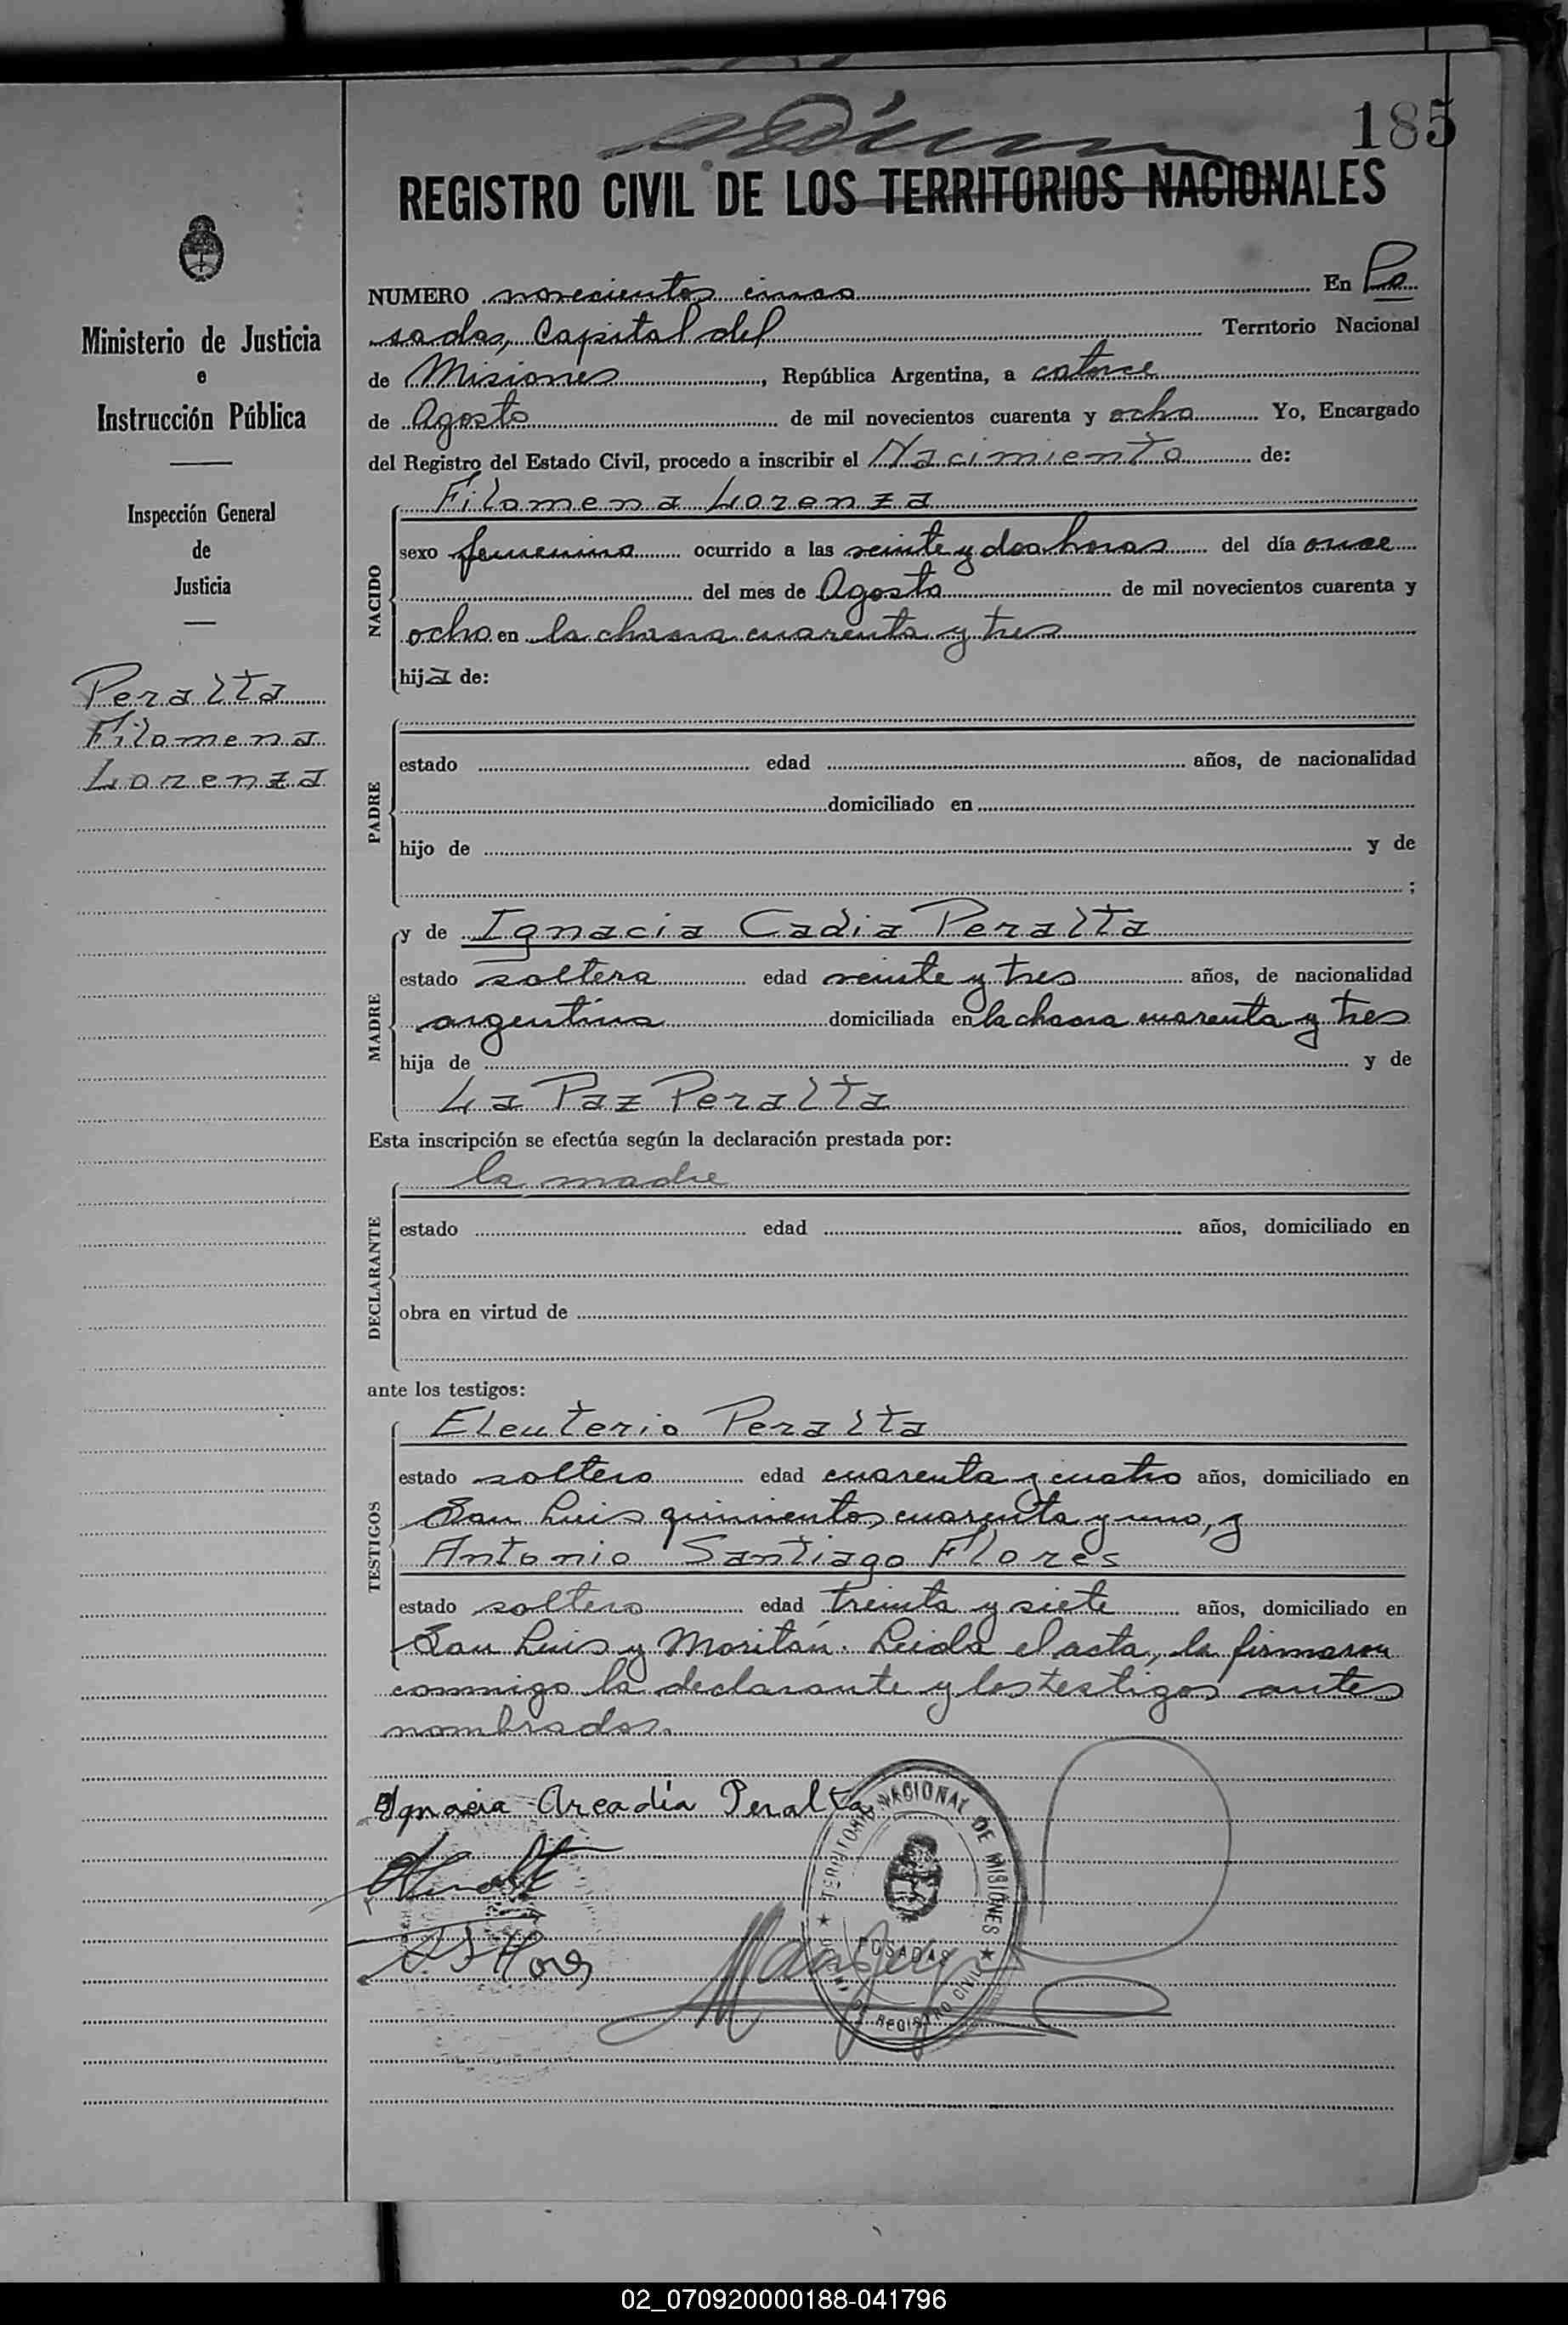 185
REGISTRO CIVIL DE LOS TERRITORIOS NACIONALES
NUMERO novecientos cinco En Po
sadas, Capital del Territorio Nacional
de Misiones, República Argentina, a catorce
de Agosto de mil novecientos cuarenta y ocho Yo, Encargado
del Registro del Estado Civil, procedo a inscribir el Nacimiento de:
NACIDO
Filomena Lorenza
sexo femenino ocurrido a las veinte y dos horas del día once
del mes de Agosto de mil novecientos cuarenta y
ocho en la chacra cuarenta y tres
hija de:
PADRE
estado edad años, de nacionalidad
domiciliado en
hijo de y de
;
MADRE
y de Ignacia Cadia Peralta
estado soltera edad veinte y tres años, de nacionalidad
argentina domiciliada en la chacra cuarenta y tres
hija de y de
La Paz Peralta
Esta inscripción se efectúa según la declaración prestada por:
DECLARANTE
la madre
estado edad años, domiciliado en
obra en virtud de
ante los testigos:
TESTIGOS
Eleuterio Peralta
estado soltero edad cuarenta y cuatro años, domiciliado en
San Luis quinientos cuarenta y uno, y
Antonio Santiago Flores
estado soltero edad treinta y siete años, domiciliado en
San Luis y Moritán. Leida el acta, la firmaron
conmigo la declarante y los testigos antes
nombrados.
Ignacia Arcadia Peralta
A. S. Flores
TERRITORIO NACIONAL DE MISIONES
POSADAS
REGISTRO CIVIL
Ministerio de Justicia
e
Instrucción Pública
Inspección General
de
Justicia
Peralta
Filomena
Lorenza
02_070920000188-041796